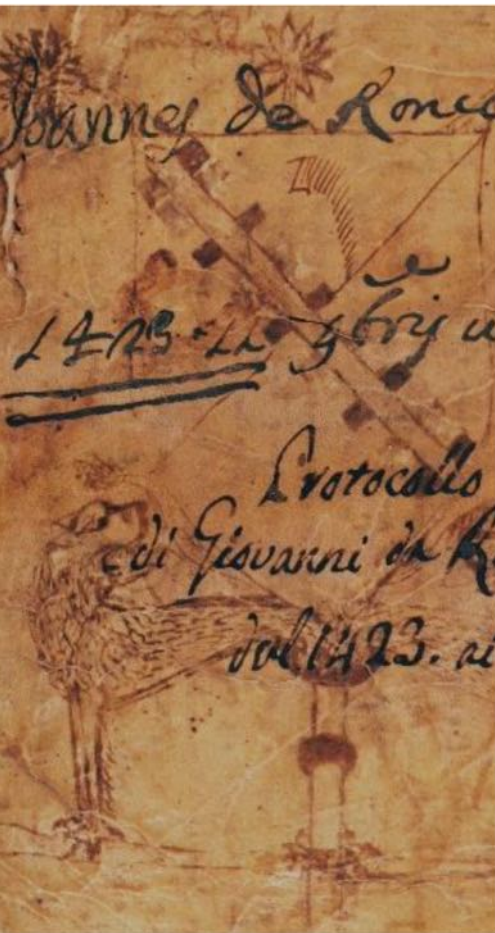 Joannes de Ronco
1423 - 11 9bris
Protocollo
di Giovanni da R
dal 1423. al